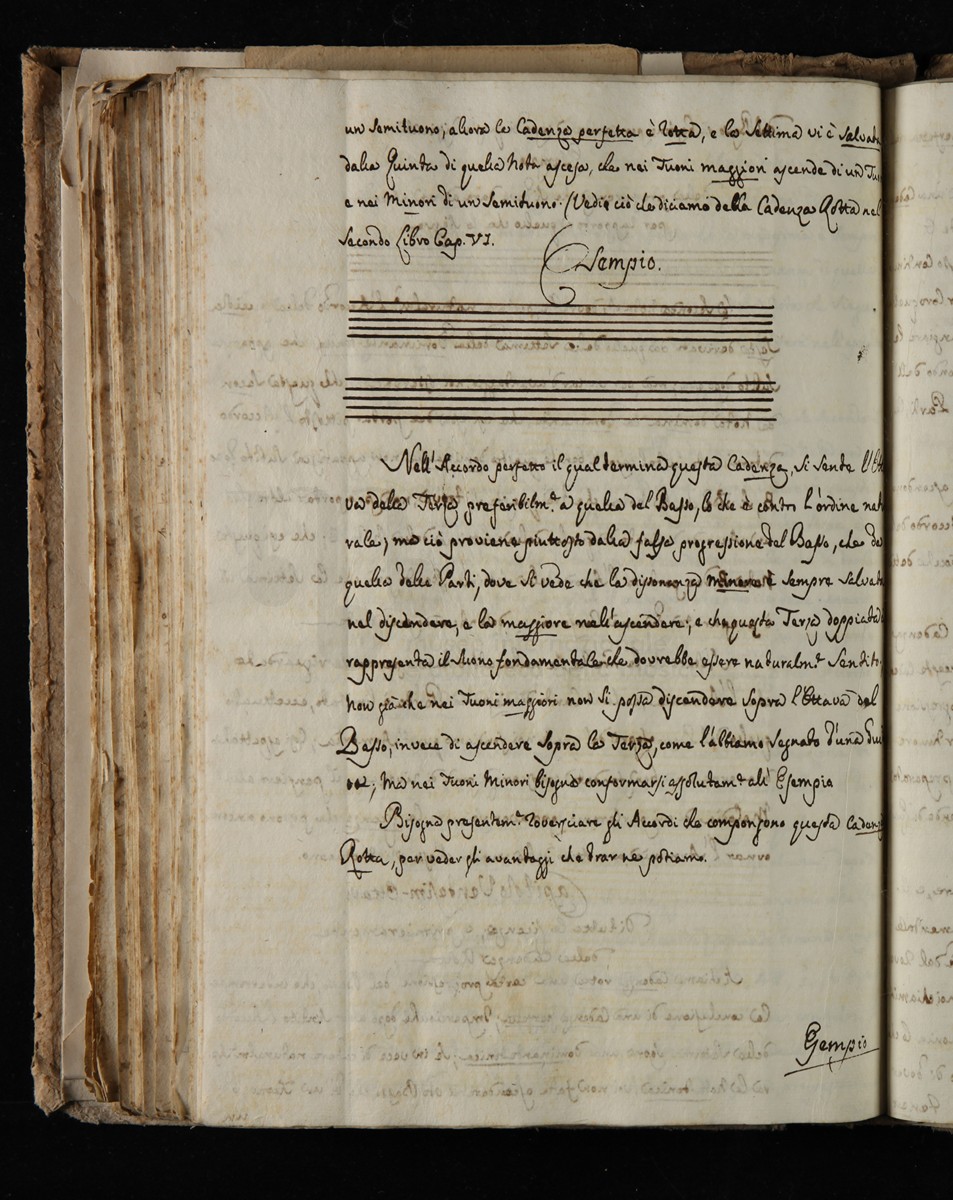 un semituono; allora la Cadenza perfetta è rotta, e la Settima vi è salvata
dalla Quinta di quella Nota ascesa, che nei Tuoni maggiori ascende di un Tuo
e nei Minori di un Semituono. (Vedi ciò che diciamo della Cadenza Rotta nel
Secondo Libro Cap. VI.
Esempio.
Nell'Accordo perfetto il qual termina questa Cadenza, si sente l'Ot
va della Terza preferibilm.e a quella del Basso, lo che è contro l'ordine nat
rale; ma ciò proviene piuttosto dalla falsa progressione del Basso, che da
quella delle Parti, dove si vede che la dissonanza minore è sempre salvata
nel discendere, e la maggiore nell'ascendere; e che questa Terza doppiata
rappresenta il Suono fondamentale che dovrebbe essere naturalm.e sentito
Non già che nei Tuoni maggiori non si possa discendere sopra l'Ottava del
Basso, invece di ascendere sopra la Terza, come l'abbiamo segnato d'una Gui
; Ma nei Tuoni Minori bisogna conformarsi assolutam.e all'Esempio
Bisogna presentem.e rovesciare gli Accordi che compongono questa Cadenz
Rotta, per veder gli avantaggi che trar ne potiamo.
Esempio